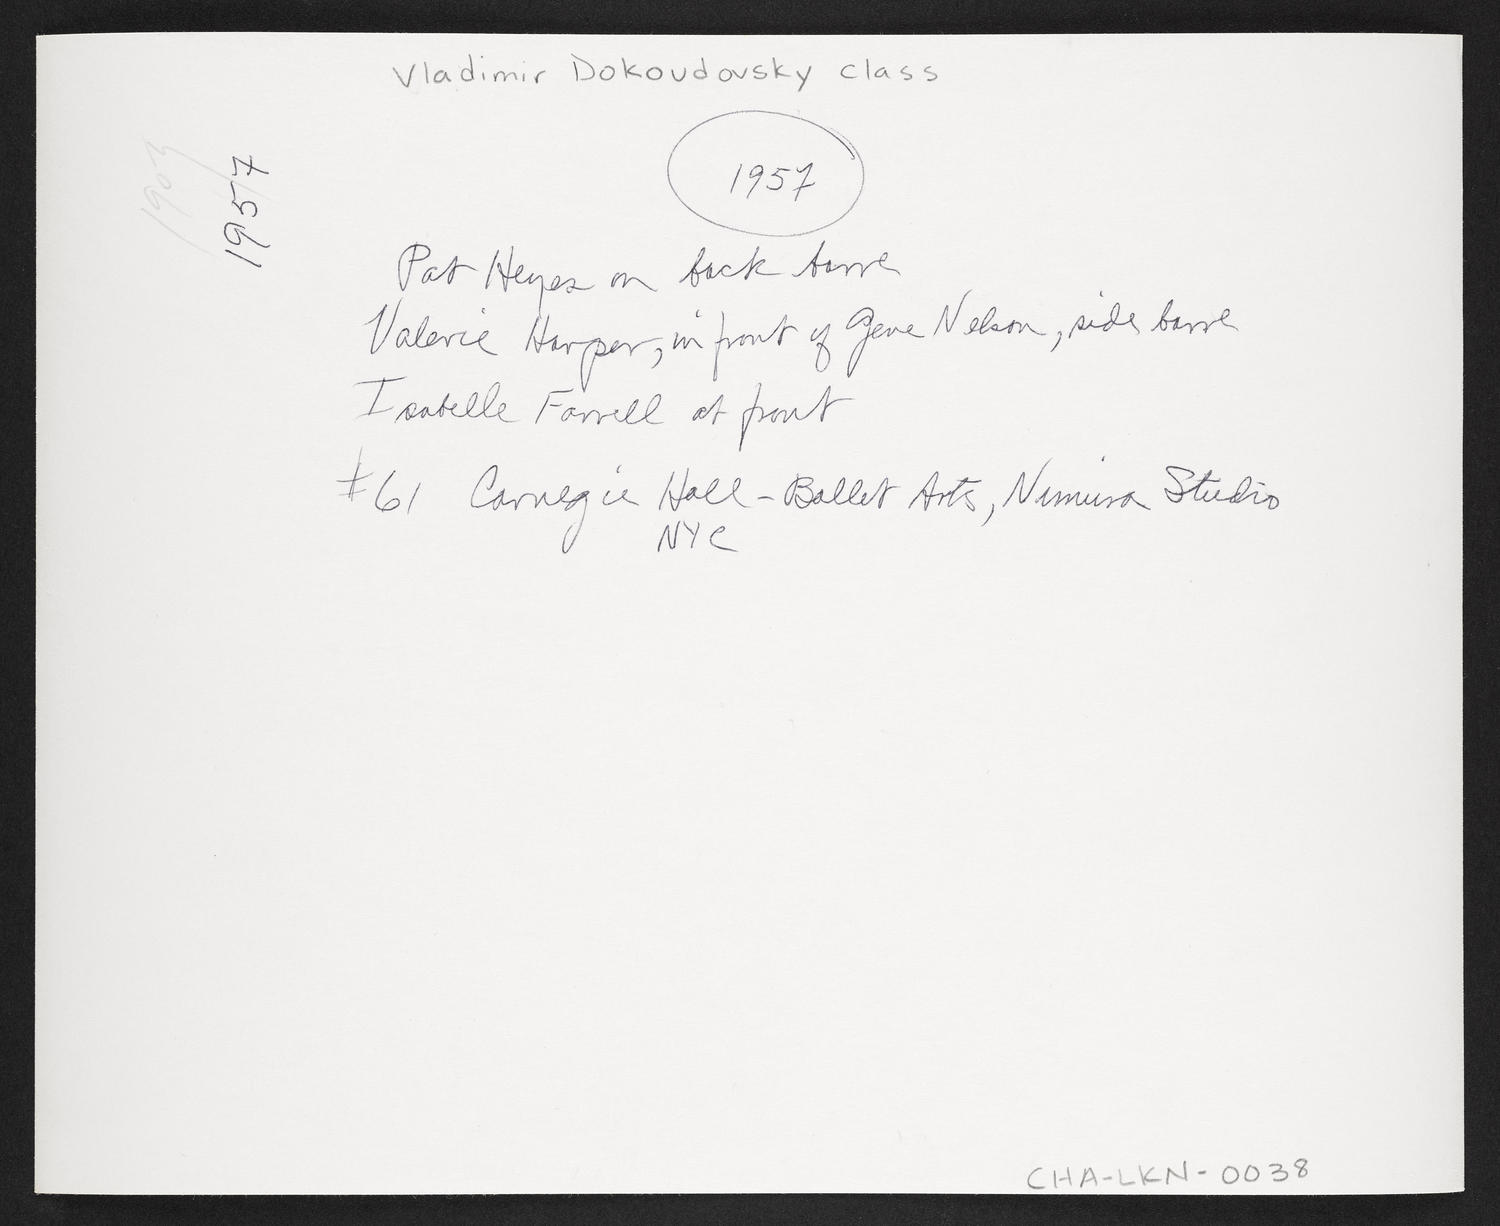 Vladimir Dokoudovsky class
1957
1957
Pat Heyes on back barre
Valerie Harper, in front of Gene Nelson, side barre
Isabelle Farrell at front
#61 Carnegie Hall - Ballet Arts, Nimura Studio
NYC
CHA-LKN-0038